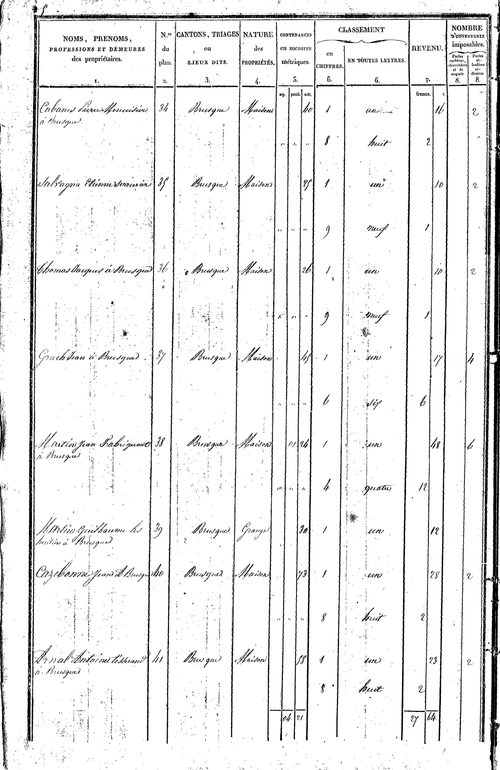 NOMS, PRENOMS,
PROFESSIONS ET DEMEURES
des propriétaires.
1.
N.os
du
plan.
2.
CANTONS, TRIAGES
ou
LIEUX DITS.
3.
NATURE
des
PROPRIÉTÉS.
4.
CONTENANCES
en mesures
métriques.
5.
CLASSEMENT
en
CHIFFRES.
6.
EN TOUTES LETTRES.
6.
REVENU.
7.
NOMBRE
D'OUVERTURES
imposables.
8.
8.
francs. c.
Cabanes Pierre 34 Brusque Maison 40 1 un 16 2
à Brusque
8 huit 2
Salvagna Etienne 35 Brusque Maison 25 1 un 10 2
9 neuf 1
Thomas Jacques à Brusque 36 Brusque Maison 26 1 un 10 2
9 neuf 1
Jean à Brusque 37 Brusque Maison 45 1 un 17 4
6 six 6
Martin Jean Fabriquant 38 Brusque Maison 01 24 1 un 48 6
à Brusque
4 quatre 12
Martin Guilhaume les 39 Brusque Grange 30 1 un 12
à Brusque
Cazebonne Jean à Brusque 40 Brusque Maison 73 1 un 28 2
8 huit 2
Arnal Antoine Tisserand 41 Brusque Maison 58 1 un 23 2
à Brusque
8 huit 2
04 21 27 64